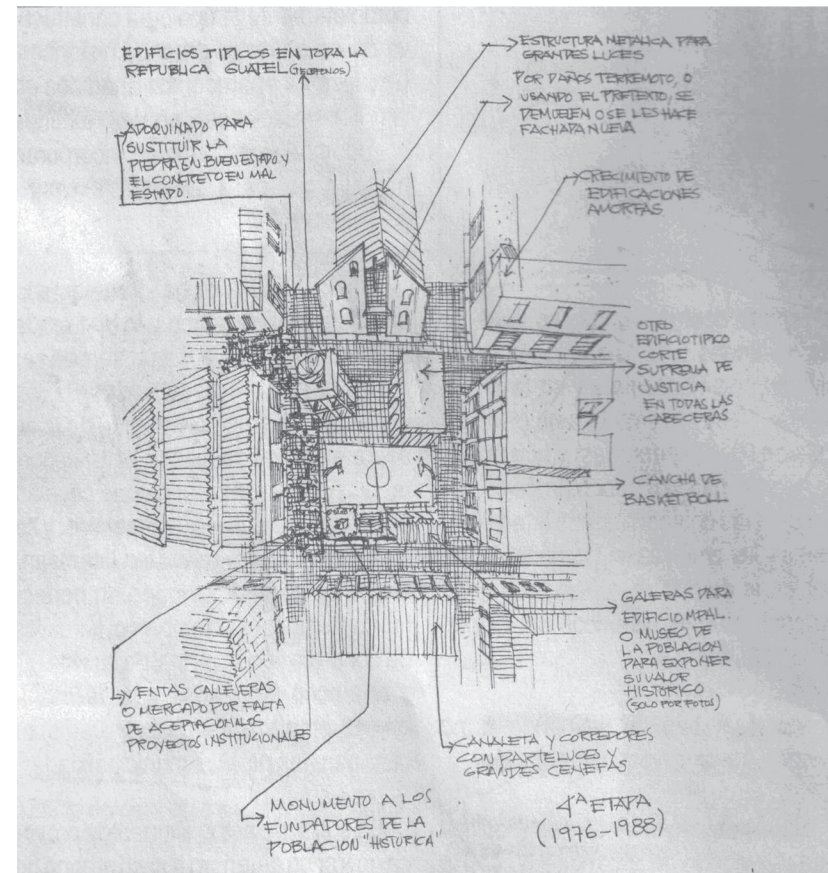 EDIFICIOS TIPICOS EN TODA LA
REPUBLICA GUATEL (TELEFONOS)
ADOQUINADO PARA
SUSTITUIR LA
PIEDRA EN BUEN ESTADO Y
EL CONCRETO EN MAL
ESTADO.
ESTRUCTURA METALICA PARA
GRANDES LUCES
POR DAÑOS TERREMOTO, O
USANDO EL PRETEXTO, SE
DEMUELEN O SE LES HACE
FACHADA NUEVA
CRECIMIENTO DE
EDIFICACIONES
AMORFAS
OTRO
EDIFICIO TIPICO
CORTE
SUPREMA DE
JUSTICIA
EN TODAS LAS
CABECERAS
CANCHA DE
BASKETBOLL
GALERAS PARA
EDIFICIO MPAL.
O MUSEO DE
LA POBLACION
PARA EXPONER
SU VALOR
HISTORICO
(SOLO POR FOTOS)
VENTAS CALLEJERAS
O MERCADO POR FALTA
DE ACEPTACION A LOS
PROYECTOS INSTITUCIONALES
CANALETA Y CORREDORES
CON PARTELUCES Y
GRANDES CENEFAS
MONUMENTO A LOS
FUNDADORES DE LA
POBLACION "HISTORICA"
4A ETAPA
(1976-1988)